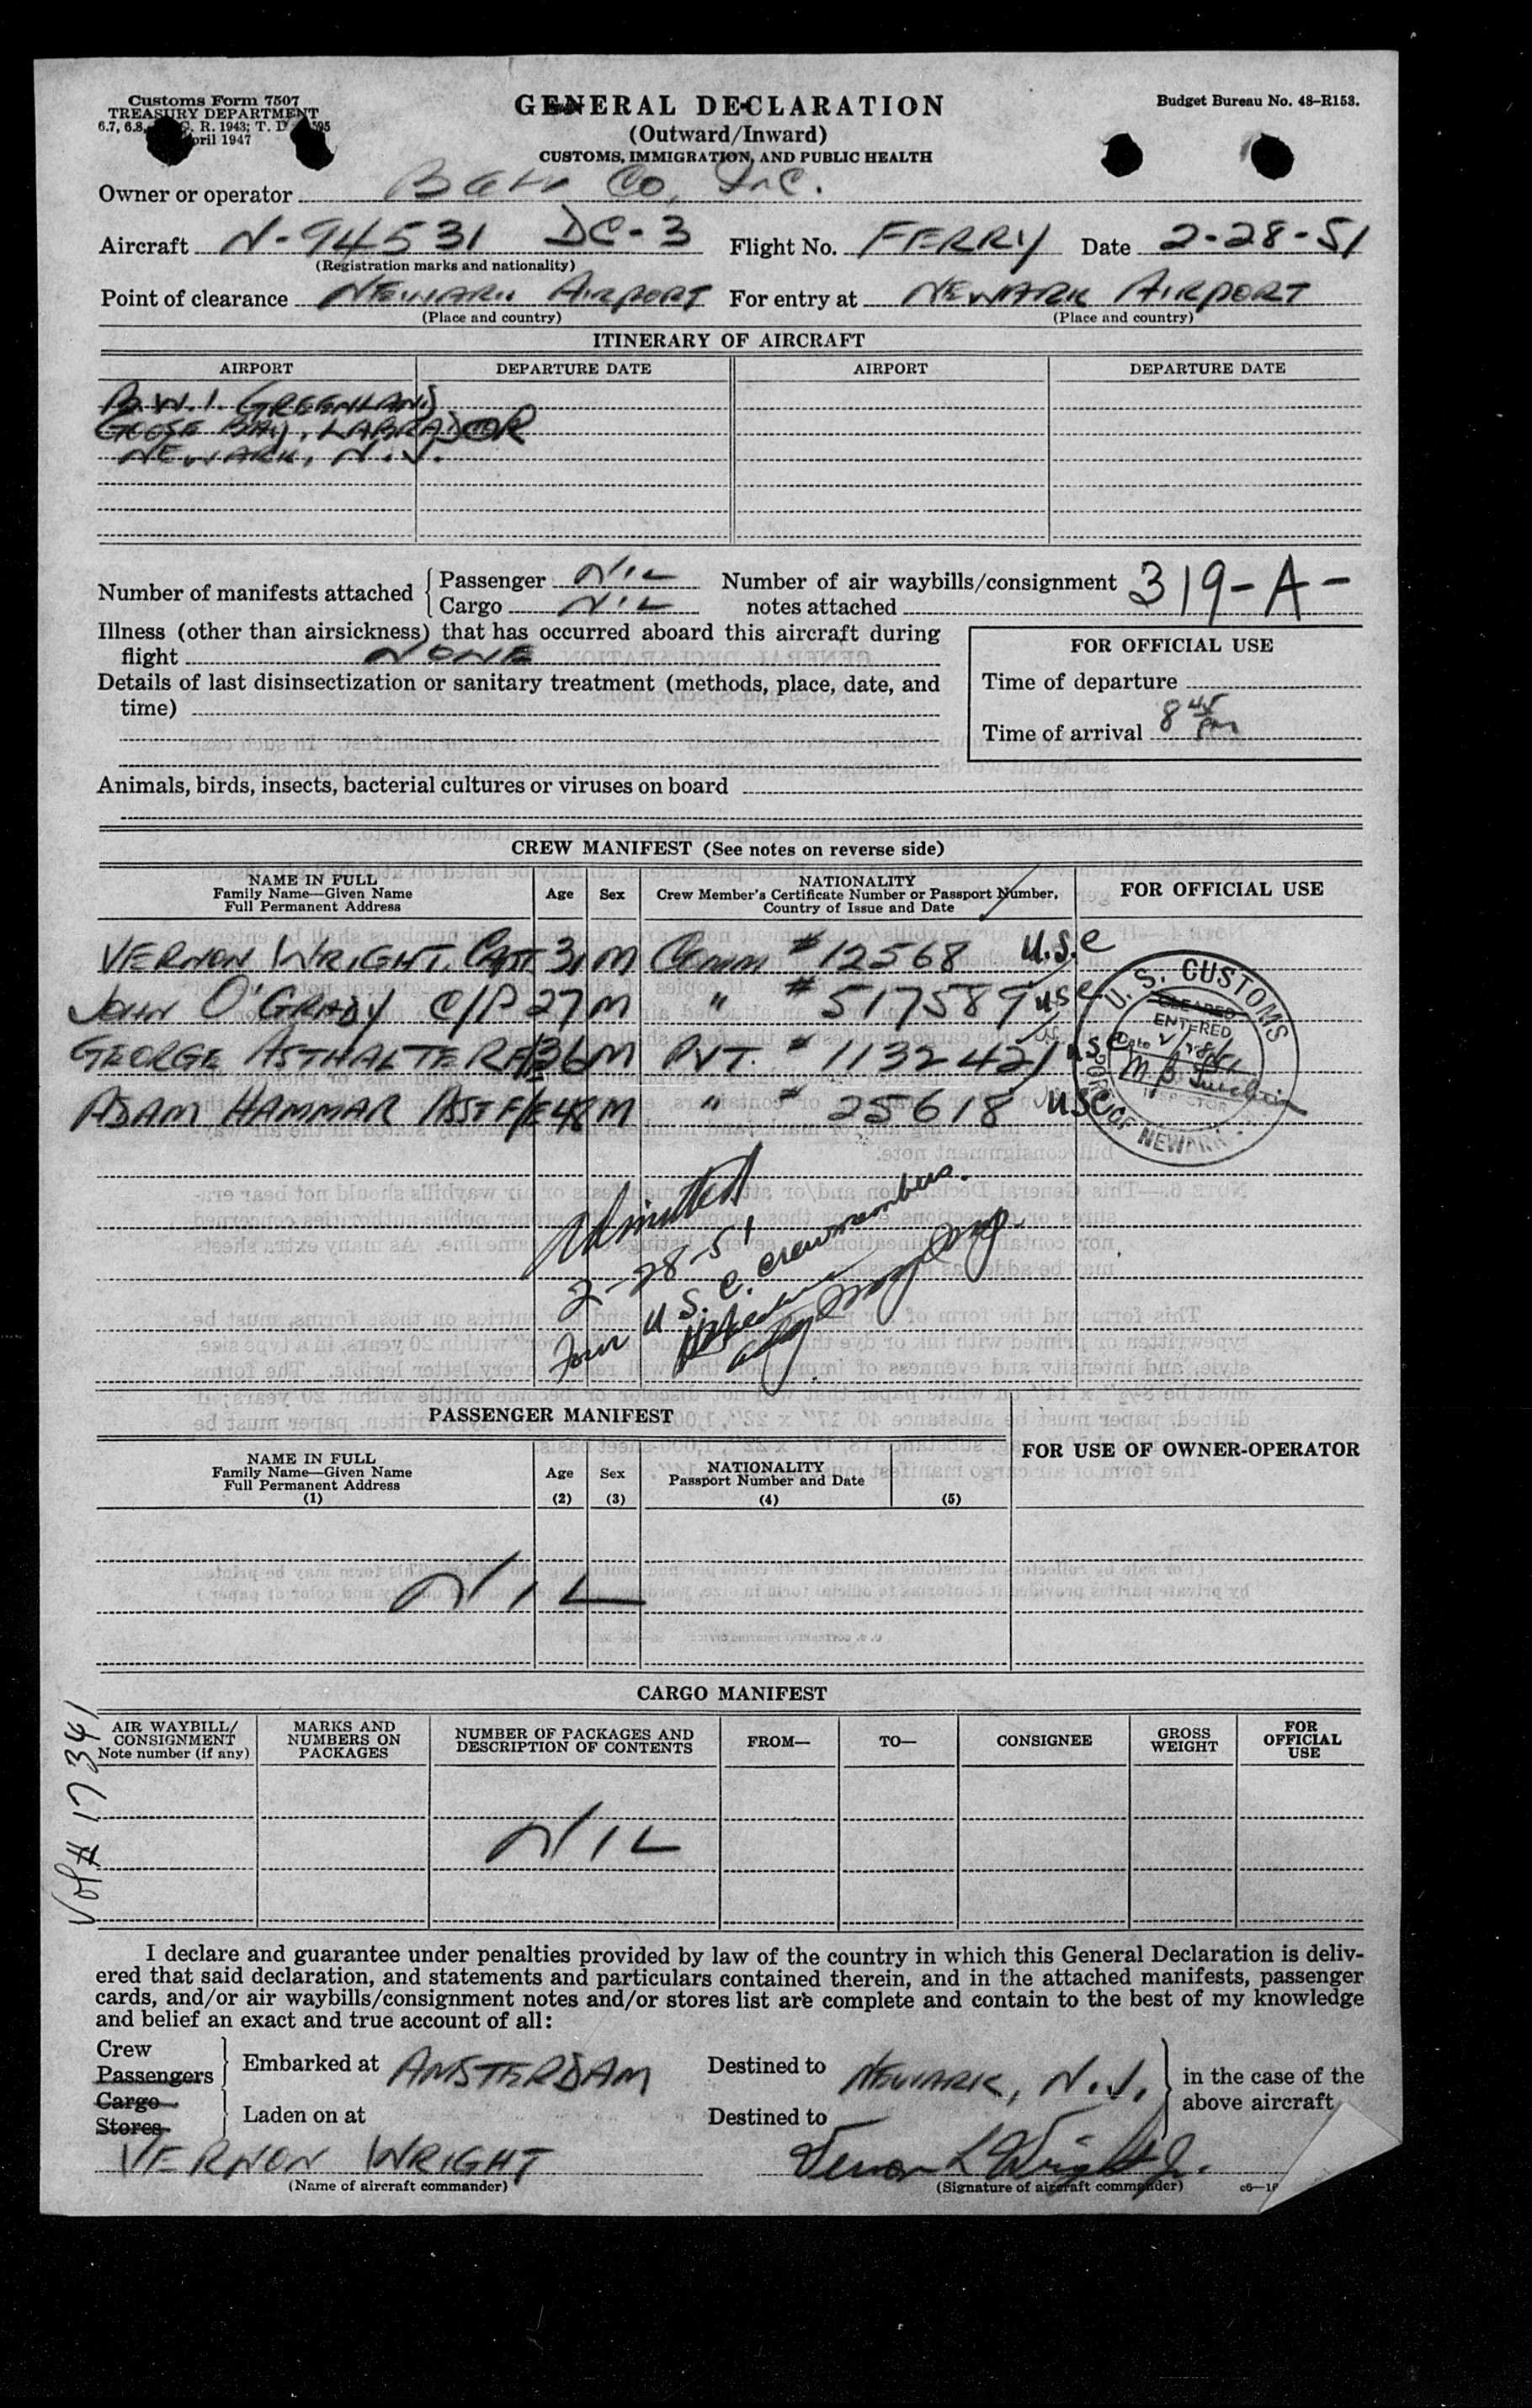 Customs Form 7507
TREASURY DEPARTMENT
6.7, 6.8, C. R. 1943; T. D.
April 1947
GENERAL DECLARATION
(Outward/Inward)
CUSTOMS, IMMIGRATION, AND PUBLIC HEALTH
Budget Bureau No. 48-R153.
Owner or operator Co, Inc.
Aircraft N-94531 DC-3 Flight No. FERRY Date 2-28-51
(Registration marks and nationality)
Point of clearance NEWARK AIRPORT For entry at NEWARK AIRPORT
(Place and country) (Place and country)
ITINERARY OF AIRCRAFT
AIRPORT DEPARTURE DATE AIRPORT DEPARTURE DATE
B.W.1. GREENLAND
GOOSE BAY, LABRADOR
NEWARK, N.J.
Number of manifests attached Passenger NIL Number of air waybills/consignment 319-A-
Cargo NIL notes attached
Illness (other than airsickness) that has occurred aboard this aircraft during
flight NONE
FOR OFFICIAL USE
Details of last disinsectization or sanitary treatment (methods, place, date, and
time)
Time of departure
Time of arrival 8 45 PM
Animals, birds, insects, bacterial cultures or viruses on board
CREW MANIFEST (See notes on reverse side)
NAME IN FULL
Family Name—Given Name
Full Permanent Address
Age Sex
NATIONALITY
Crew Member's Certificate Number or Passport Number,
Country of Issue and Date
FOR OFFICIAL USE
VERNON WRIGHT, Capt 31 M Comm #12568 U.S.C
JOHN O'GRADY C/P 27 M " #517589 USC
GEORGE ASTHALTER F/E 36 M PVT. #1132421 USC
ADAM HAMMAR ASST F/E 48 M " #25618 USC
U.S. CUSTOMS
CLEARED
ENTERED
Date 2/28/51
INSPECTOR
PORT OF NEWARK
Admitted
2-28-51
Four U.S.C. crewmembers.
PASSENGER MANIFEST
NAME IN FULL
Family Name—Given Name
Full Permanent Address
(1)
Age
(2)
Sex
(3)
NATIONALITY
Passport Number and Date
(4) (5)
FOR USE OF OWNER-OPERATOR
NIL
CARGO MANIFEST
AIR WAYBILL/
CONSIGNMENT
Note number (if any)
MARKS AND
NUMBERS ON
PACKAGES
NUMBER OF PACKAGES AND
DESCRIPTION OF CONTENTS
FROM— TO— CONSIGNEE
GROSS
WEIGHT
FOR
OFFICIAL
USE
NIL
Vol # 17341
I declare and guarantee under penalties provided by law of the country in which this General Declaration is deliv-
ered that said declaration, and statements and particulars contained therein, and in the attached manifests, passenger
cards, and/or air waybills/consignment notes and/or stores list are complete and contain to the best of my knowledge
and belief an exact and true account of all:
Crew
Passengers
Cargo
Stores
Embarked at AMSTERDAM Destined to NEWARK, N.J.
Laden on at Destined to
in the case of the
above aircraft
VERNON WRIGHT Vernon L Wright Jr.
(Name of aircraft commander) (Signature of aircraft commander)